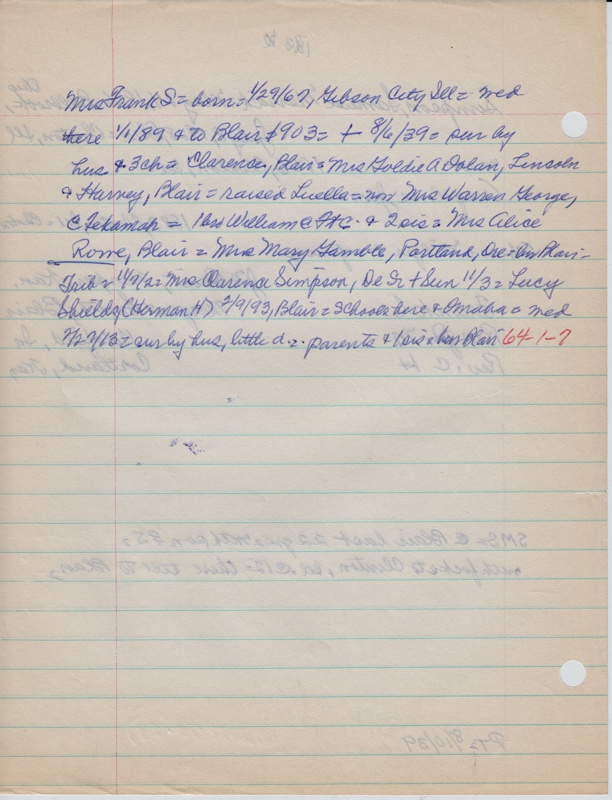 Mrs Frank S = born = 1/29/67, Gibson City Ill = med
there 1/1/89 & to Blair 1903 = + 8/6/39 = sur by
hus & 3ch = Clarence, Blair = Mrs Goldie A Dolan, Lincoln
& Harvey, Blair = raised Luella = now Mrs Warren George,
@ Tekamah = 1 bro William C & 2 sis = Mrs Alice
Rowe, Blair = Mrs Mary Gamble, Portland, Ore = bur Blair -
Trib = Mrs Clarence Simpson, De Sr + Sun 11/3 = Lucy
Shields (Herman H) 2/9/93, Blair = Schools here & Omaha = med
2/27/13 = sur by hus, little d = parents & 1 sis = bur Blair 64-1-7